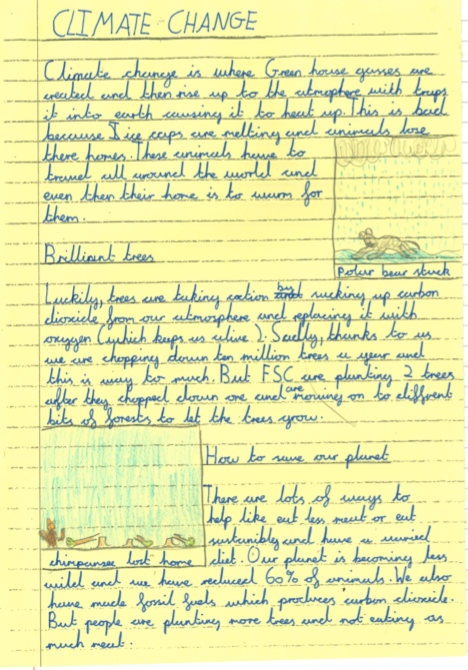 CLIMATE CHANGE
Climate change is where Green house gasses are
created and then rise up to the atmosphere with traps
it into earth causing it to heat up. This is bad
because Ice caps are melting and animals lose
there homes. These animals have to
travel all around the world and
even then their home is to warm for
them.
polar bear stuck
Brilliant trees
Luckily, trees are taking action by sucking up carbon
dioxcide from our atmosphere and replacing it with
oxygen (which keeps us alive). Sadly, thanks to us
we are chopping down ten million trees a year and
this is way to much. But FSC are planting 2 trees
after they chopped down one and are moving on to diffrent
bits of forests to let the trees grow.
chimpansee lost home
How to save our planet
There are lots of ways to
help like eat less meat or eat
sustanibly and have a varied
diet. Our planet is becoming less
wild and we have reduced 60% of animals. We also
have made fossil fuels which produces carbon dioxcide.
But people are planting more trees and not eating as
much meat.